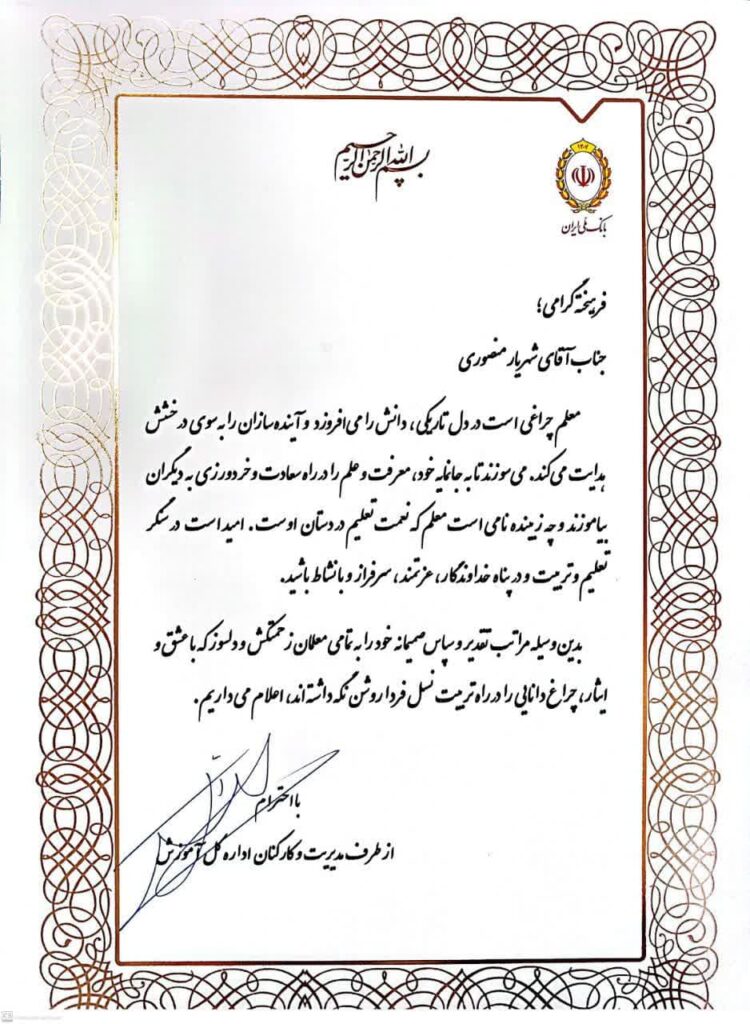 بسم الله الرحمن الرحیم
۱۳۰۷
بانک ملی ایران
فرهیخته گرامی؛
جناب آقای شهریار منصوری
معلم چراغی است در دل تاریکی، دانش را می افروزد و آینده سازان را به سوی درخشش
هدایت می کند. می سوزند تا به جانمایه خود، معرفت و علم را در راه سعادت و خردورزی به دیگران
بیاموزند و چه زیبنده نامی است معلم که نعمت تعلیم در دستان اوست. امید است در سنگر
تعلیم و تربیت و در پناه خداوندگار، عزتمند، سرفراز و بانشاط باشید.
بدین وسیله مراتب تقدیر و سپاس صمیمانه خود را به تمامی معلمان زحمتکش و دلسوز که با عشق و
ایثار، چراغ دانایی را در راه تربیت نسل فردا روشن نگه داشته اند، اعلام می داریم.
با احترام
از طرف مدیریت و کارکنان اداره کل آموزش